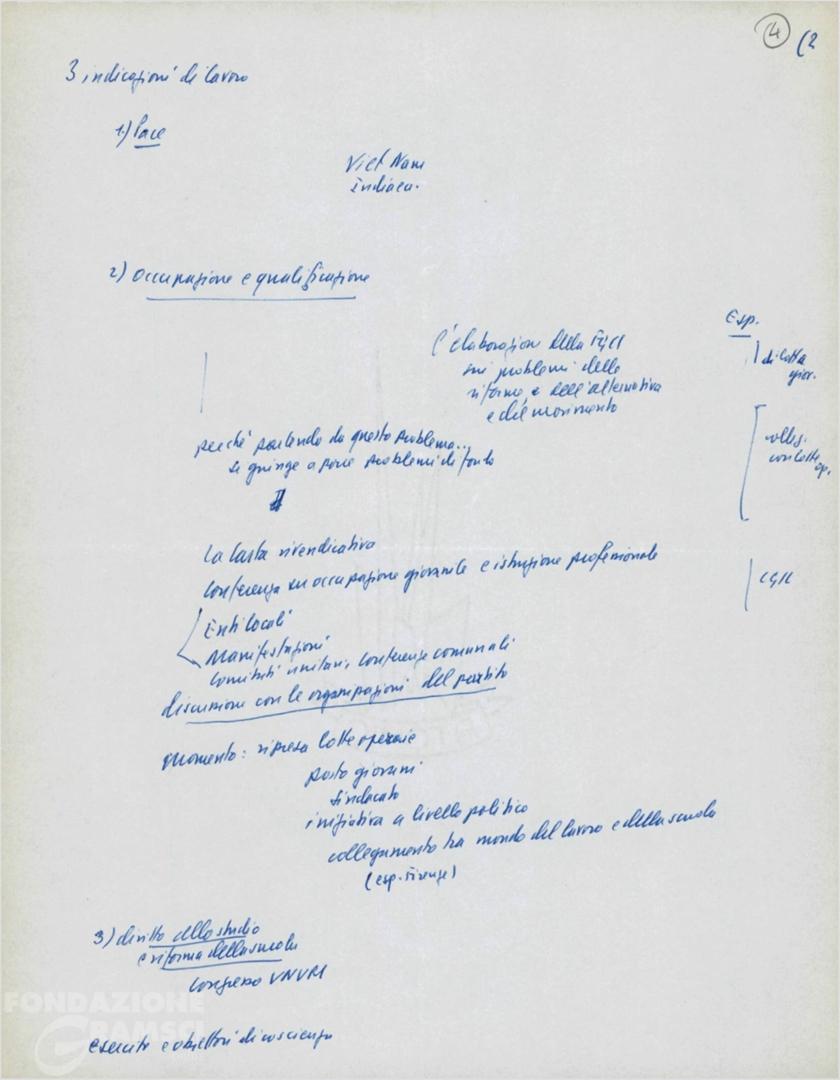 4 (2
3 indicazioni di lavoro
1) Pace
Viet Nam
2) Occupazione e qualificazione
Esp.
L'elaborazione della FGCI
sui problemi delle
riforme, e dell'alternativa
e del movimento
di lotta
giov.
perché partendo da questo problema...
si giunge a porre problemi di fondo
colleg.
con lotte
op.
La Carta rivendicativa
Conferenza su occupazione giovanile e istruzione professionale
CGIL
Enti locali
Manifestazioni
Comitati unitari, conferenze comunali
discussione con le organizzazioni del partito
Momento: ripresa lotte operaie
posto giovani
sindacato
iniziativa a livello politico
collegamento tra mondo del lavoro e della scuola
(esp. Firenze)
3) diritto allo studio
e riforma della scuola
Congresso UNURI
esercito e obiettori di coscienza
FONDAZIONE
GRAMSCI